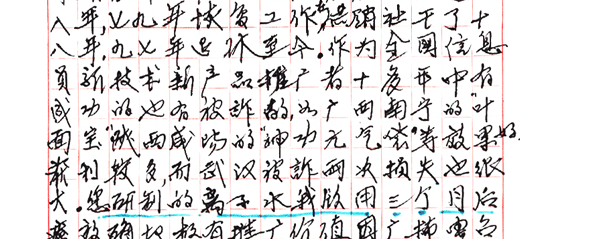 八年,七九年恢复工作,供销社干了十
八年,九七年退休至今。作为全国信息
员新技术新产品推广者十多年中有
成功的也有被詐的,如广西南宁的"叶
面宝"陕西咸阳的"神功元气袋"等效果好.
获利较多,而武汉被詐两次损失也很
大。您研制的离子水我饮用三个月后
效确切极有推广价值